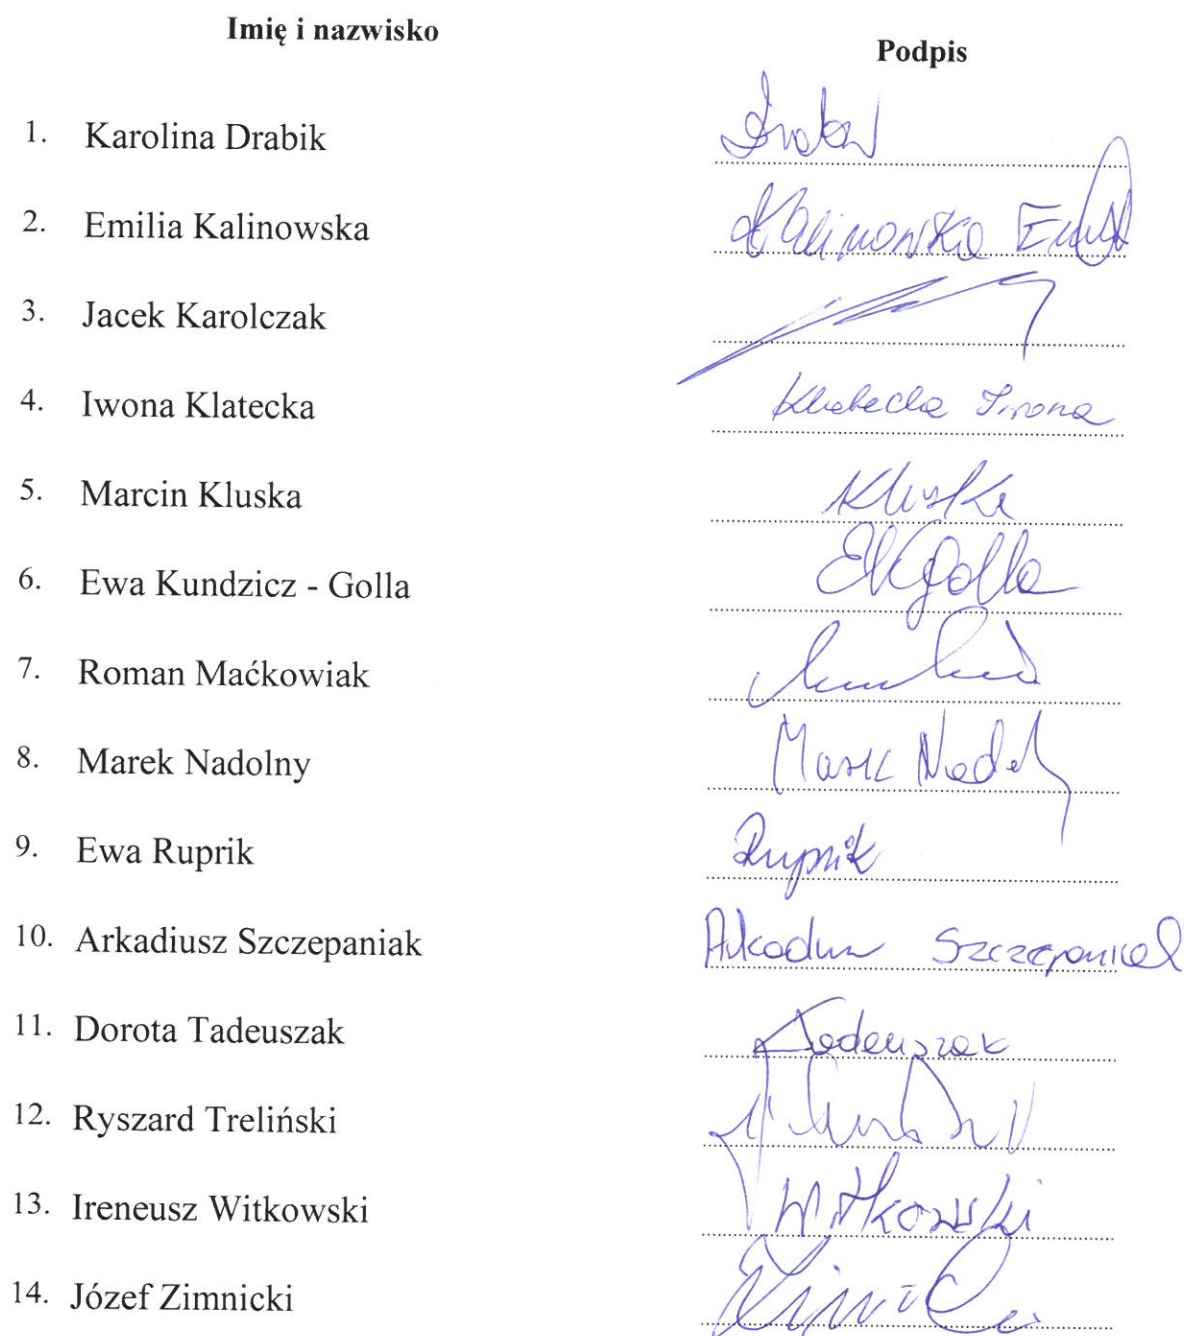 Imię i nazwisko
Podpis
1. Karolina Drabik
2. Emilia Kalinowska Kalinowska
3. Jacek Karolczak
4. Iwona Klatecka Klatecka Iwona
5. Marcin Kluska Kluska
6. Ewa Kundzicz - Golla EKGolla
7. Roman Maćkowiak
8. Marek Nadolny Marek
9. Ewa Ruprik Rupnik
10. Arkadiusz Szczepaniak Szczepaniak
11. Dorota Tadeuszak Tadeuszak
12. Ryszard Treliński
13. Ireneusz Witkowski Witkowski
14. Józef Zimnicki